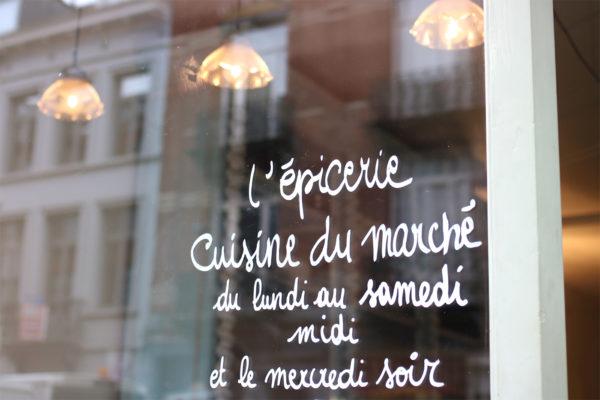 l'épicerie
Cuisine du marché
du lundi au samedi
midi
et le mercredi soir